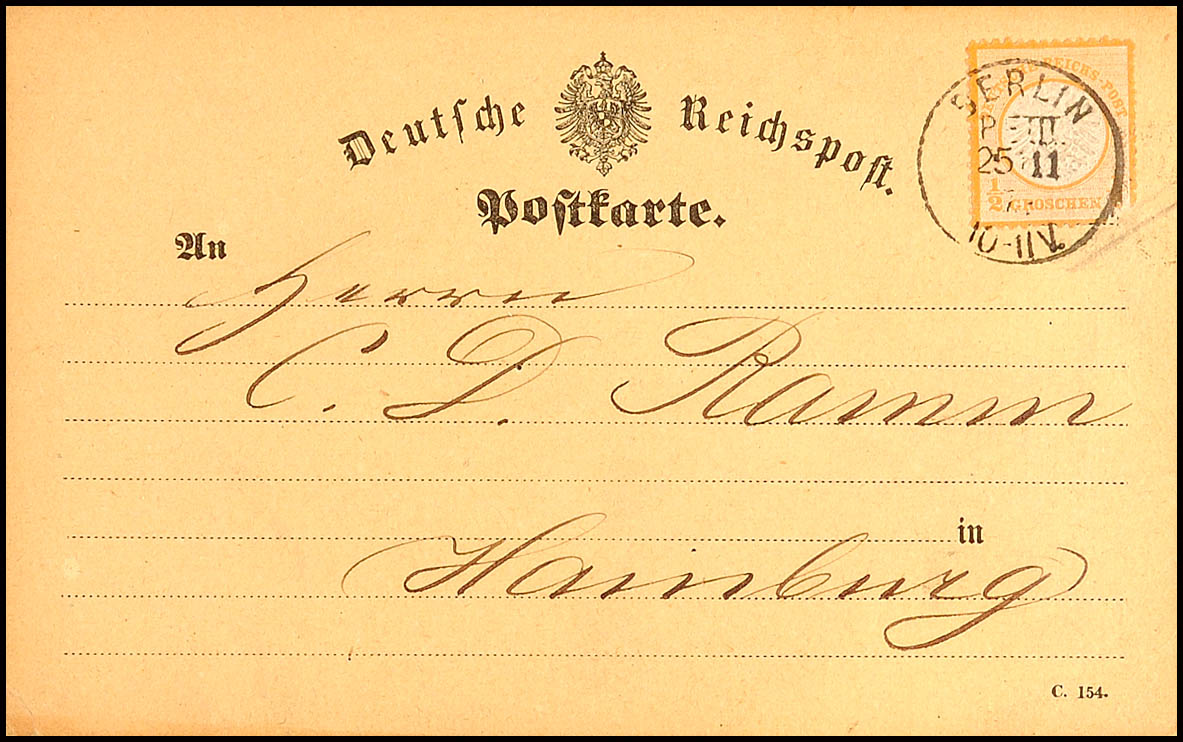 Deutsche Reichspost.
Postkarte.
DEUTSCHE REICHS-POST
1/2 GROSCHEN
BERLIN
P. III.
25 11
10-11 V.
An
Herrn
C. D. Ramm
in
Hamburg
C. 154.